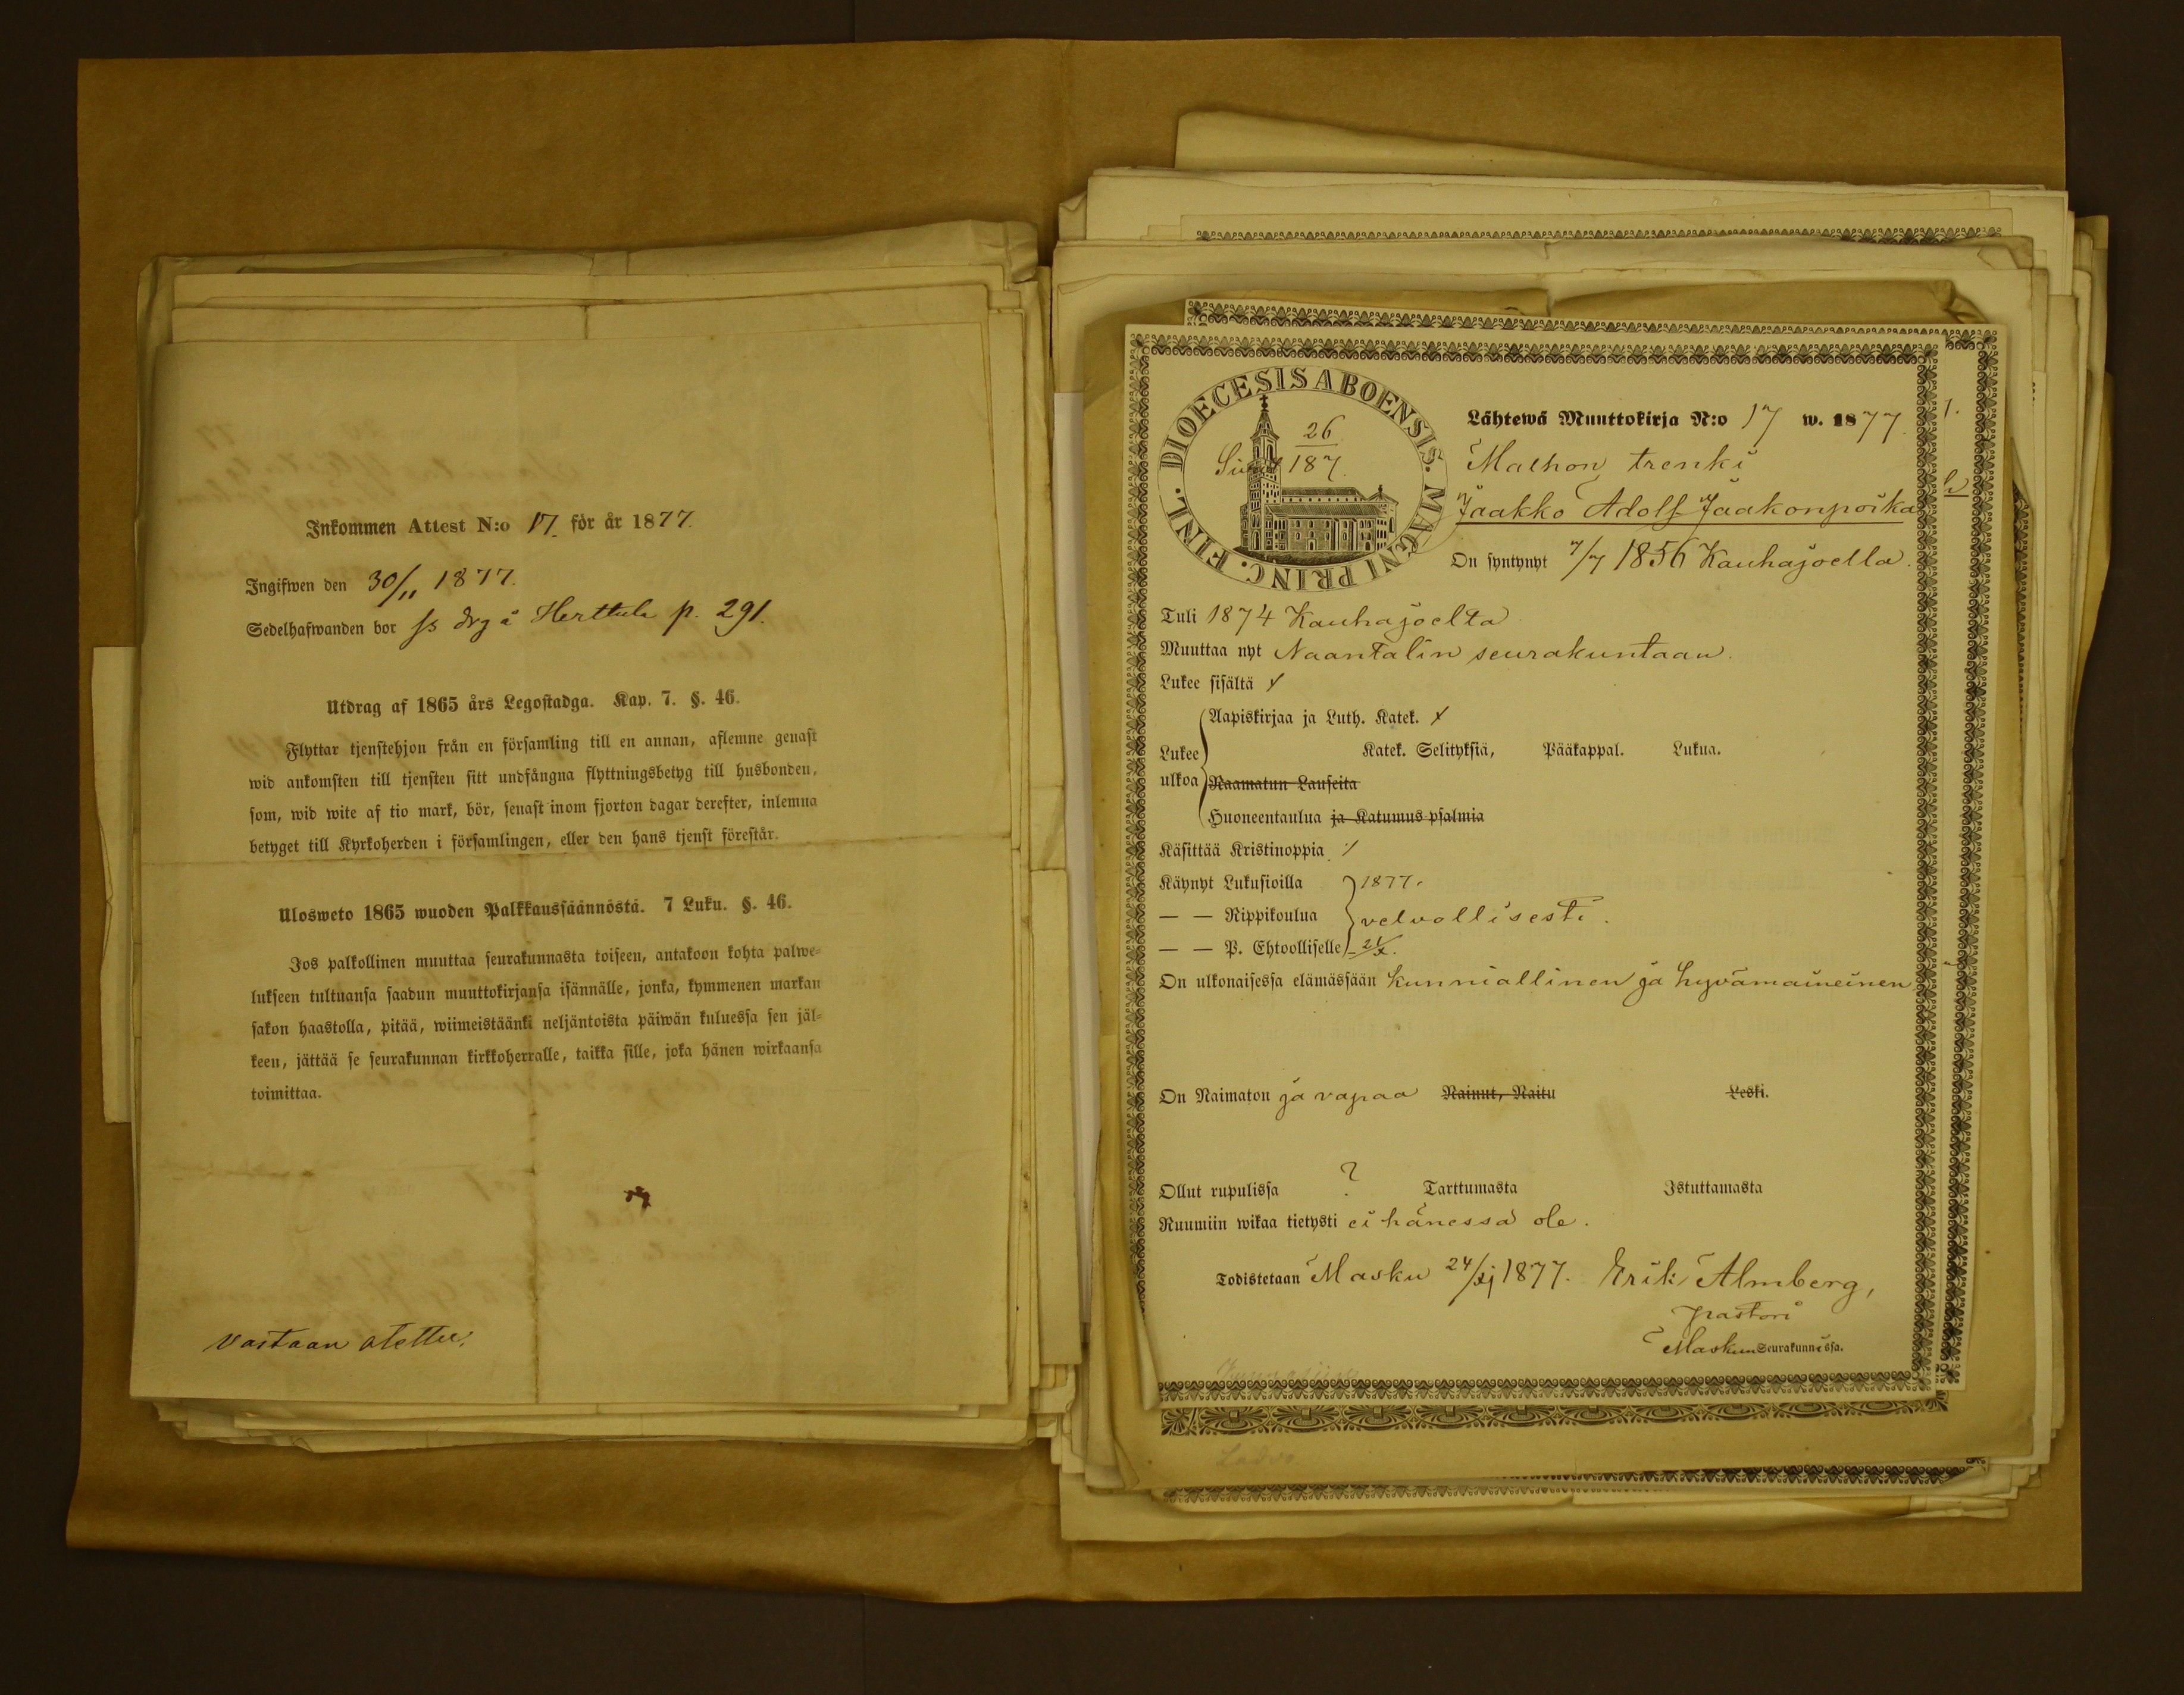 Inkommen Attest N:o 17. för år 1877.
Ingifwen den 30/11 1877.
Sedelhafwanden bor ss drg å Herttula p. 291.
Utdrag af 1865 års Legostadga. Kap. 7. §. 46.
Flyttar tjenstehjon från en församling till en annan, aflemne genast
wid ankomsten till tjensten sitt undfångna flyttningsbetyg till husbonden,
som, wid wite af tio mark, bör, senast inom fjorton dagar derefter, inlemna
betyget till Kyrkoherden i församlingen, eller den hans tjenst förestår.
Ulosweto 1865 wuoden Palkkaussäännöstä. 7 Luku. §. 46.
Jos palkollinen muuttaa seurakunnasta toiseen, antakoon kohta palwe-
lukseen tultuansa saadun muuttokirjansa isännälle, jonka, kymmenen markan
sakon haastolla, pitää, wiimeistäänki neljäntoista päiwän kuluessa sen jäl-
keen, jättää se seurakunnan kirkkoherralle, taikka sille, joka hänen wirkaansa
toimittaa.
vastaan otettu.
DIOECESIS ABOENSIS. MAGNI PRINC. FINL.
26
187
Lähtewä Muuttokirja N:o 17 w. 1877.
trenki
Jaakko Adolf Jaakonpoika
On syntynyt 7/7 1856 Kauhajoella.
Tuli 1874 Kauhajoelta
Muuttaa nyt Naantalin seurakuntaan.
Lukee sisältä x
Lukee ulkoa
Aapiskirjaa ja Luth. Katek. x
Katek. Selityksiä, Pääkappal. Lukua.
Raamatun Lauseita
Huoneentaulua ja Katumus psalmia
Käsittää Kristinoppia
Käynyt Lukusioilla 1877.
— — Rippikoulua velvollisesti.
— — P. Ehtoolliselle
On ulkonaisessa elämässään kunniallinen ja hyvämaineinen
On Naimaton ja vapaa Nainut, Naitu Leski.
Ollut rupulissa ? Tarttumasta Istuttamasta
Ruumiin wikaa tietysti ei hänessä ole.
Todistetaan Masku 24/xj 1877. Erik Almberg,
pastori
Maskun Seurakunnassa.